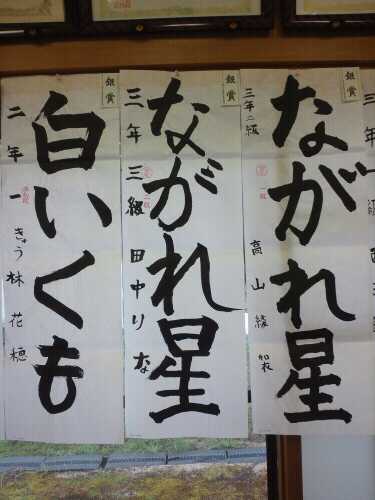 銀賞
ながれ星
三年二級
高山綾加衣
銀賞
ながれ星
三年三級
田中りな
銀賞
白いくも
二年一きゅう
林花穂